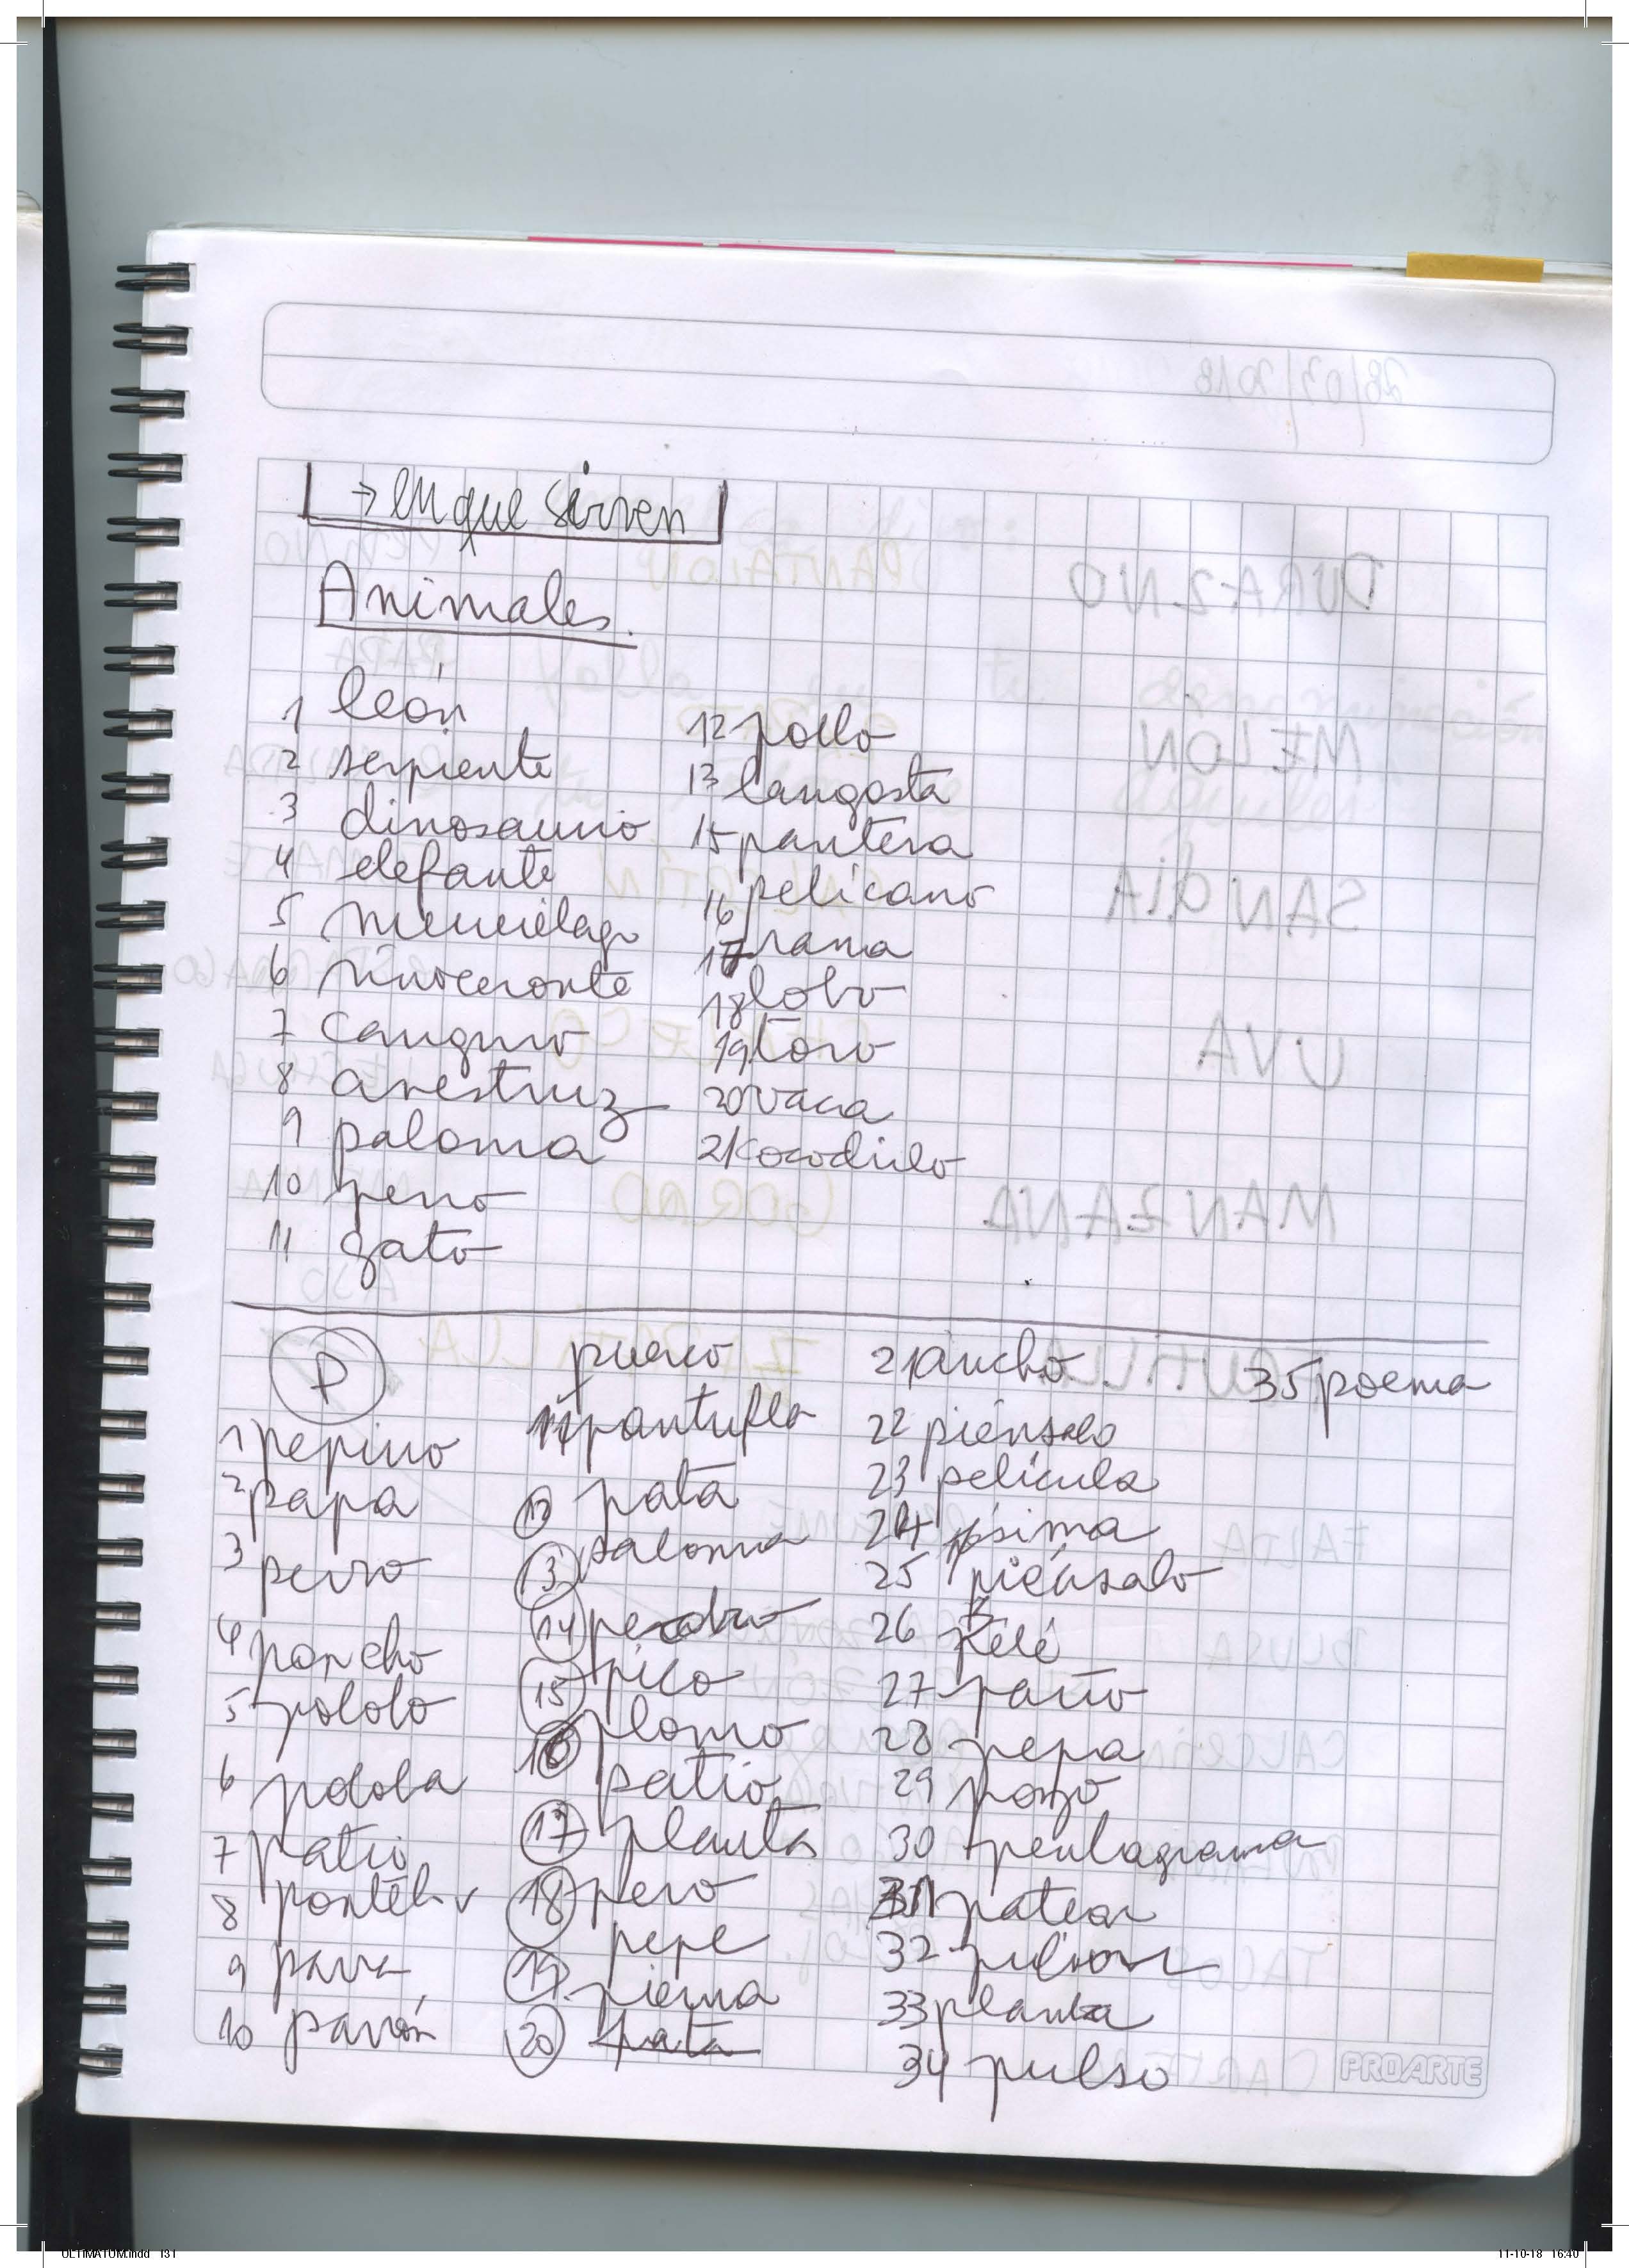 → en que sirven
Animales.
1 león
2 serpiente
3 dinosaurio
4 elefante
5 murcielago
6 rinoceronte
7 canguro
8 avestruz
9 paloma
10 perro
11 gato
12 pollo
13 langosta
15 pantera
16 pelícano
17 rana
18 lobo
19 toro
20 vaca
21 cocodrilo
P
1 pepino
2 papa
3 perro
4 poncho
5 pololo
6 polola
7 patio
8
9 pava
10 pavón
puerco
11 pantufla
12 pata
13 paloma
14
15 pico
16 plomo
patio
17 planta
18 pero
pepe
19 pierna
20 pata
21 ancho
22 piénsalo
23 película
24
25 piénsalo
26 pelé
27 patio
28 pepa
29 pozo
30 pentagrama
31 patear
32
33 planta
34 pulso
35 poema
PROARTE
28/03/2018
DURAZNO
MELON
SANDÍA
UVA
MANZANA
PANTALON
GORRO
ULTIMATUM.indd 131
11-10-18 16:40